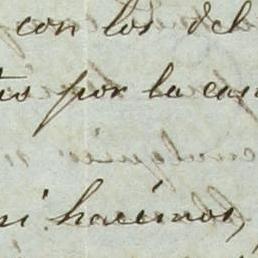 con los del
por la cas
ni hacemos,